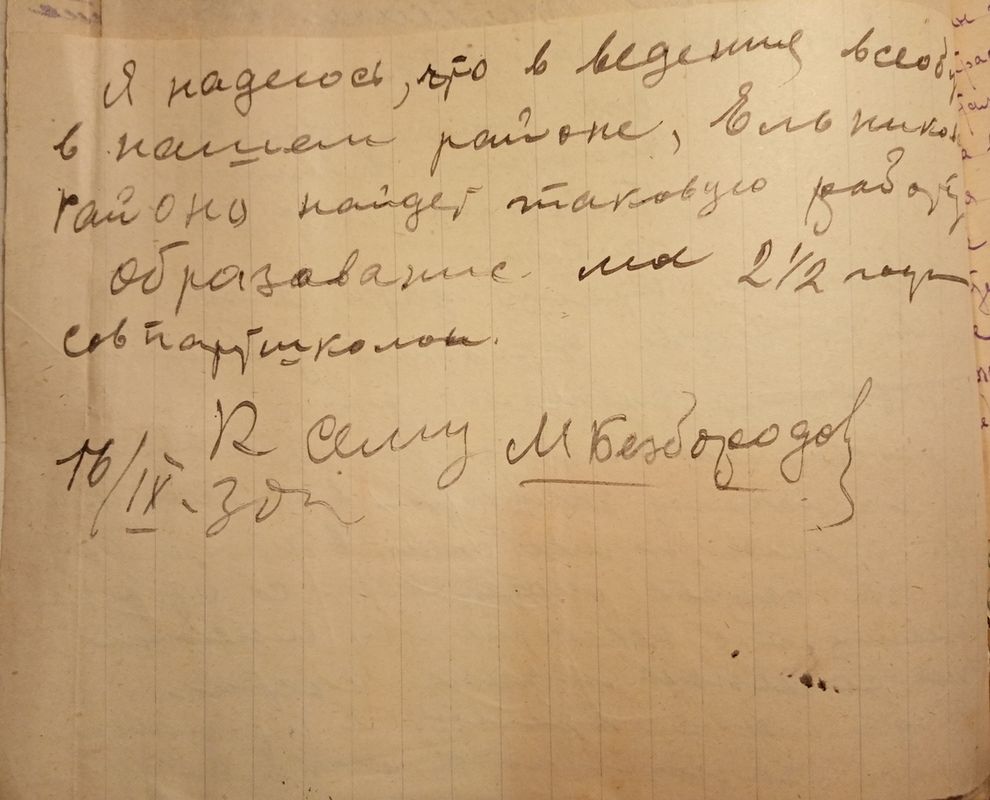 Я надеюсь, что в ведения всеоб
в нашем районе, Ельников
районо найдет таковую работу
образование мое 2 1/2 года
совпартшколы.
К сему М Безбородов
16/IX-30г